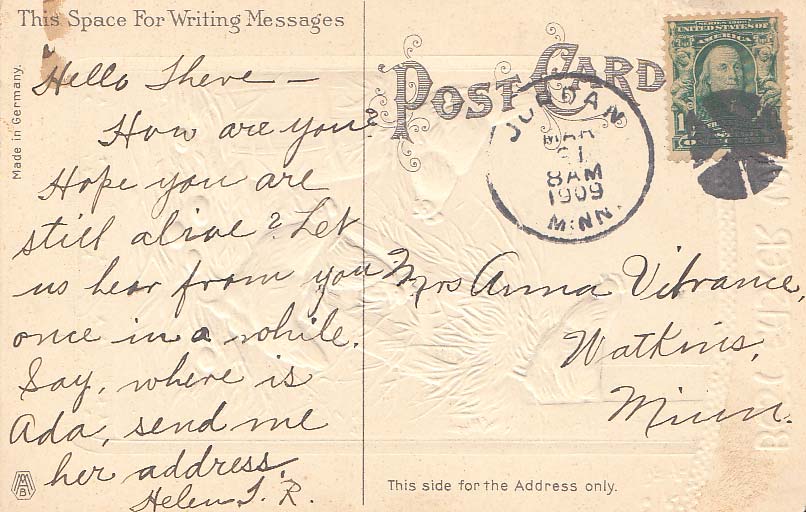 This Space For Writing Messages
Made in Germany.
Hello There —
How are you?
Hope you are
still alive? Let
us hear from you
once in a while.
Say, where is
Ada, send me
her address.
Helen T. R.
POST CARD
JORDAN
MAR
31
8 AM
1909
MINN.
SERIES 1902
UNITED STATES OF
AMERICA
1
Mrs Anna Vibrance,
Watkins,
Minn.
This side for the Address only.